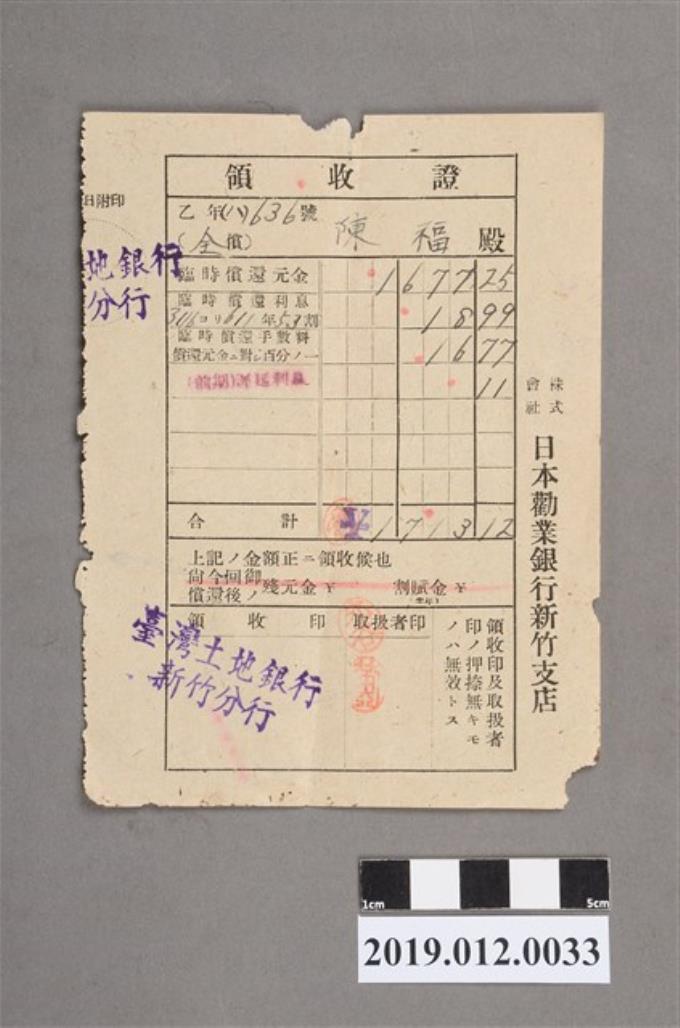 領收證
乙年(八)636號
(全償)
陳福殿
臨時償還元金 1677.25
臨時償還利息
306ヨリ611年5.3割 18.99
臨時償還手數料
償還元金ニ對シ百分ノ一 16.77
11
合計 1713.12
上記ノ金額正ニ領收候也
尙今回御
償還後ノ
殘元金¥ 割賦金¥
領收印 取扱者印
領收印及取扱者
印ノ押捺無キモ
ノハ無效トス
株式
會社
日本勸業銀行新竹支店
日附印
地銀行
分行
臺灣土地銀行
新竹分行
1cm 5cm
2019.012.0033